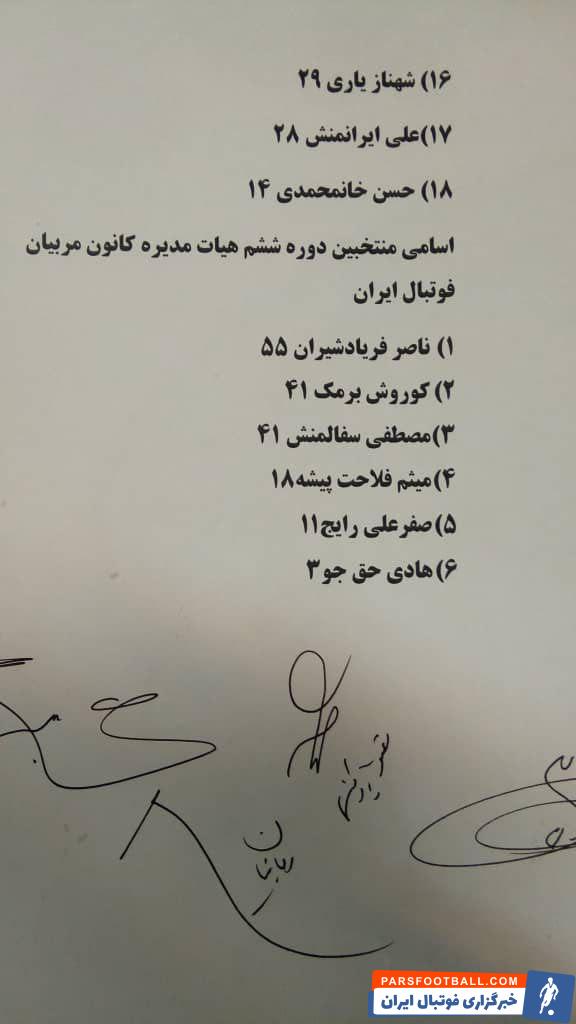 ۱۶) شهناز یاری ۲۹
۱۷)علی ایرانمنش ۲۸
۱۸) حسن خانمحمدی ۱۴
اسامی منتخبین دوره ششم هیات مدیره کانون مربیان
فوتبال ایران
۱) ناصر فریادشیران ۵۵
۲) کوروش برمک ۴۱
۳)مصطفی سفالمنش ۴۱
۴)میثم فلاحت پیشه۱۸
۵)صفرعلی رایج۱۱
۶)هادی حق جو۳
PARSFOOTBALL.COM
خبرگزاری فوتبال ایران